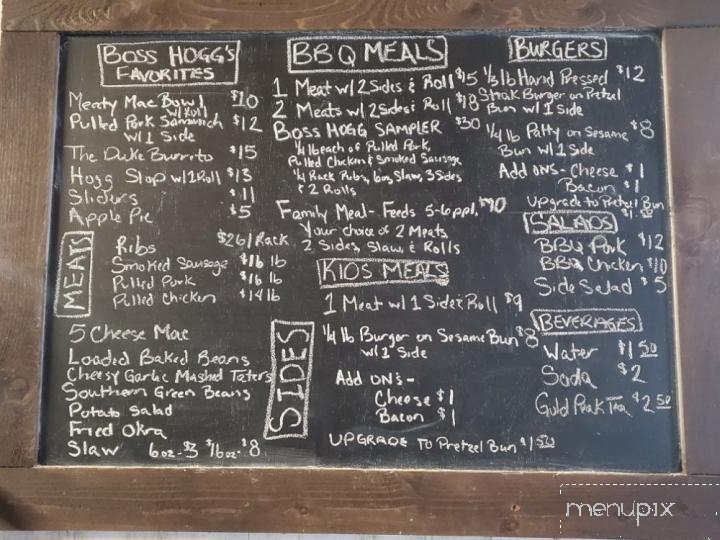 BOSS HOGG'S
FAVORITES
Meaty Mac Bowl $10
w/Roll
Pulled Pork Sandwich $12
w/1 Side
The Duke Burrito $15
Hogg Slop w/1 Roll $13
Sliders $11
Apple Pie $5
MEATS
Ribs $26/Rack
Smoked Sausage $16 lb
Pulled Pork $16 lb
Pulled Chicken $14 lb
SIDES
5 Cheese Mac
Loaded Baked Beans
Cheesy Garlic Mashed Taters
Southern Green Beans
Potato Salad
Fried Okra
Slaw 6oz-$3 16oz-$8
BBQ MEALS
1 Meat w/2 Sides & Roll $15
2 Meats w/2 Sides & Roll $18
BOSS HOGG SAMPLER $30
1/4 lb each of Pulled Pork,
Pulled Chicken & Smoked Sausage
1/4 Rack Ribs, 6oz Slaw, 3 Sides
& 2 Rolls
Family Meal- Feeds 5-6 ppl. $70
Your choice of 2 Meats
2 Sides, Slaw & Rolls
KIDS MEALS
1 Meat w/1 Side & Roll $9
1/4 lb Burger on Sesame Bun $8
w/1 Side
Add ONS-
Cheese $1
Bacon $1
UPGRADE TO Pretzel Bun $1.50
BURGERS
1/3 lb Hand Pressed $12
Steak Burger on Pretzel
Bun w/1 Side
1/4 lb Patty on Sesame $8
Bun w/1 Side
Add ONS- Cheese $1
Bacon $1
Upgrade to Pretzel Bun
$1.50
SALADS
BBQ Pork $12
BBQ Chicken $10
Side Salad $5
BEVERAGES
Water $1.50
Soda $2
Gold Peak Tea $2.50
menupix